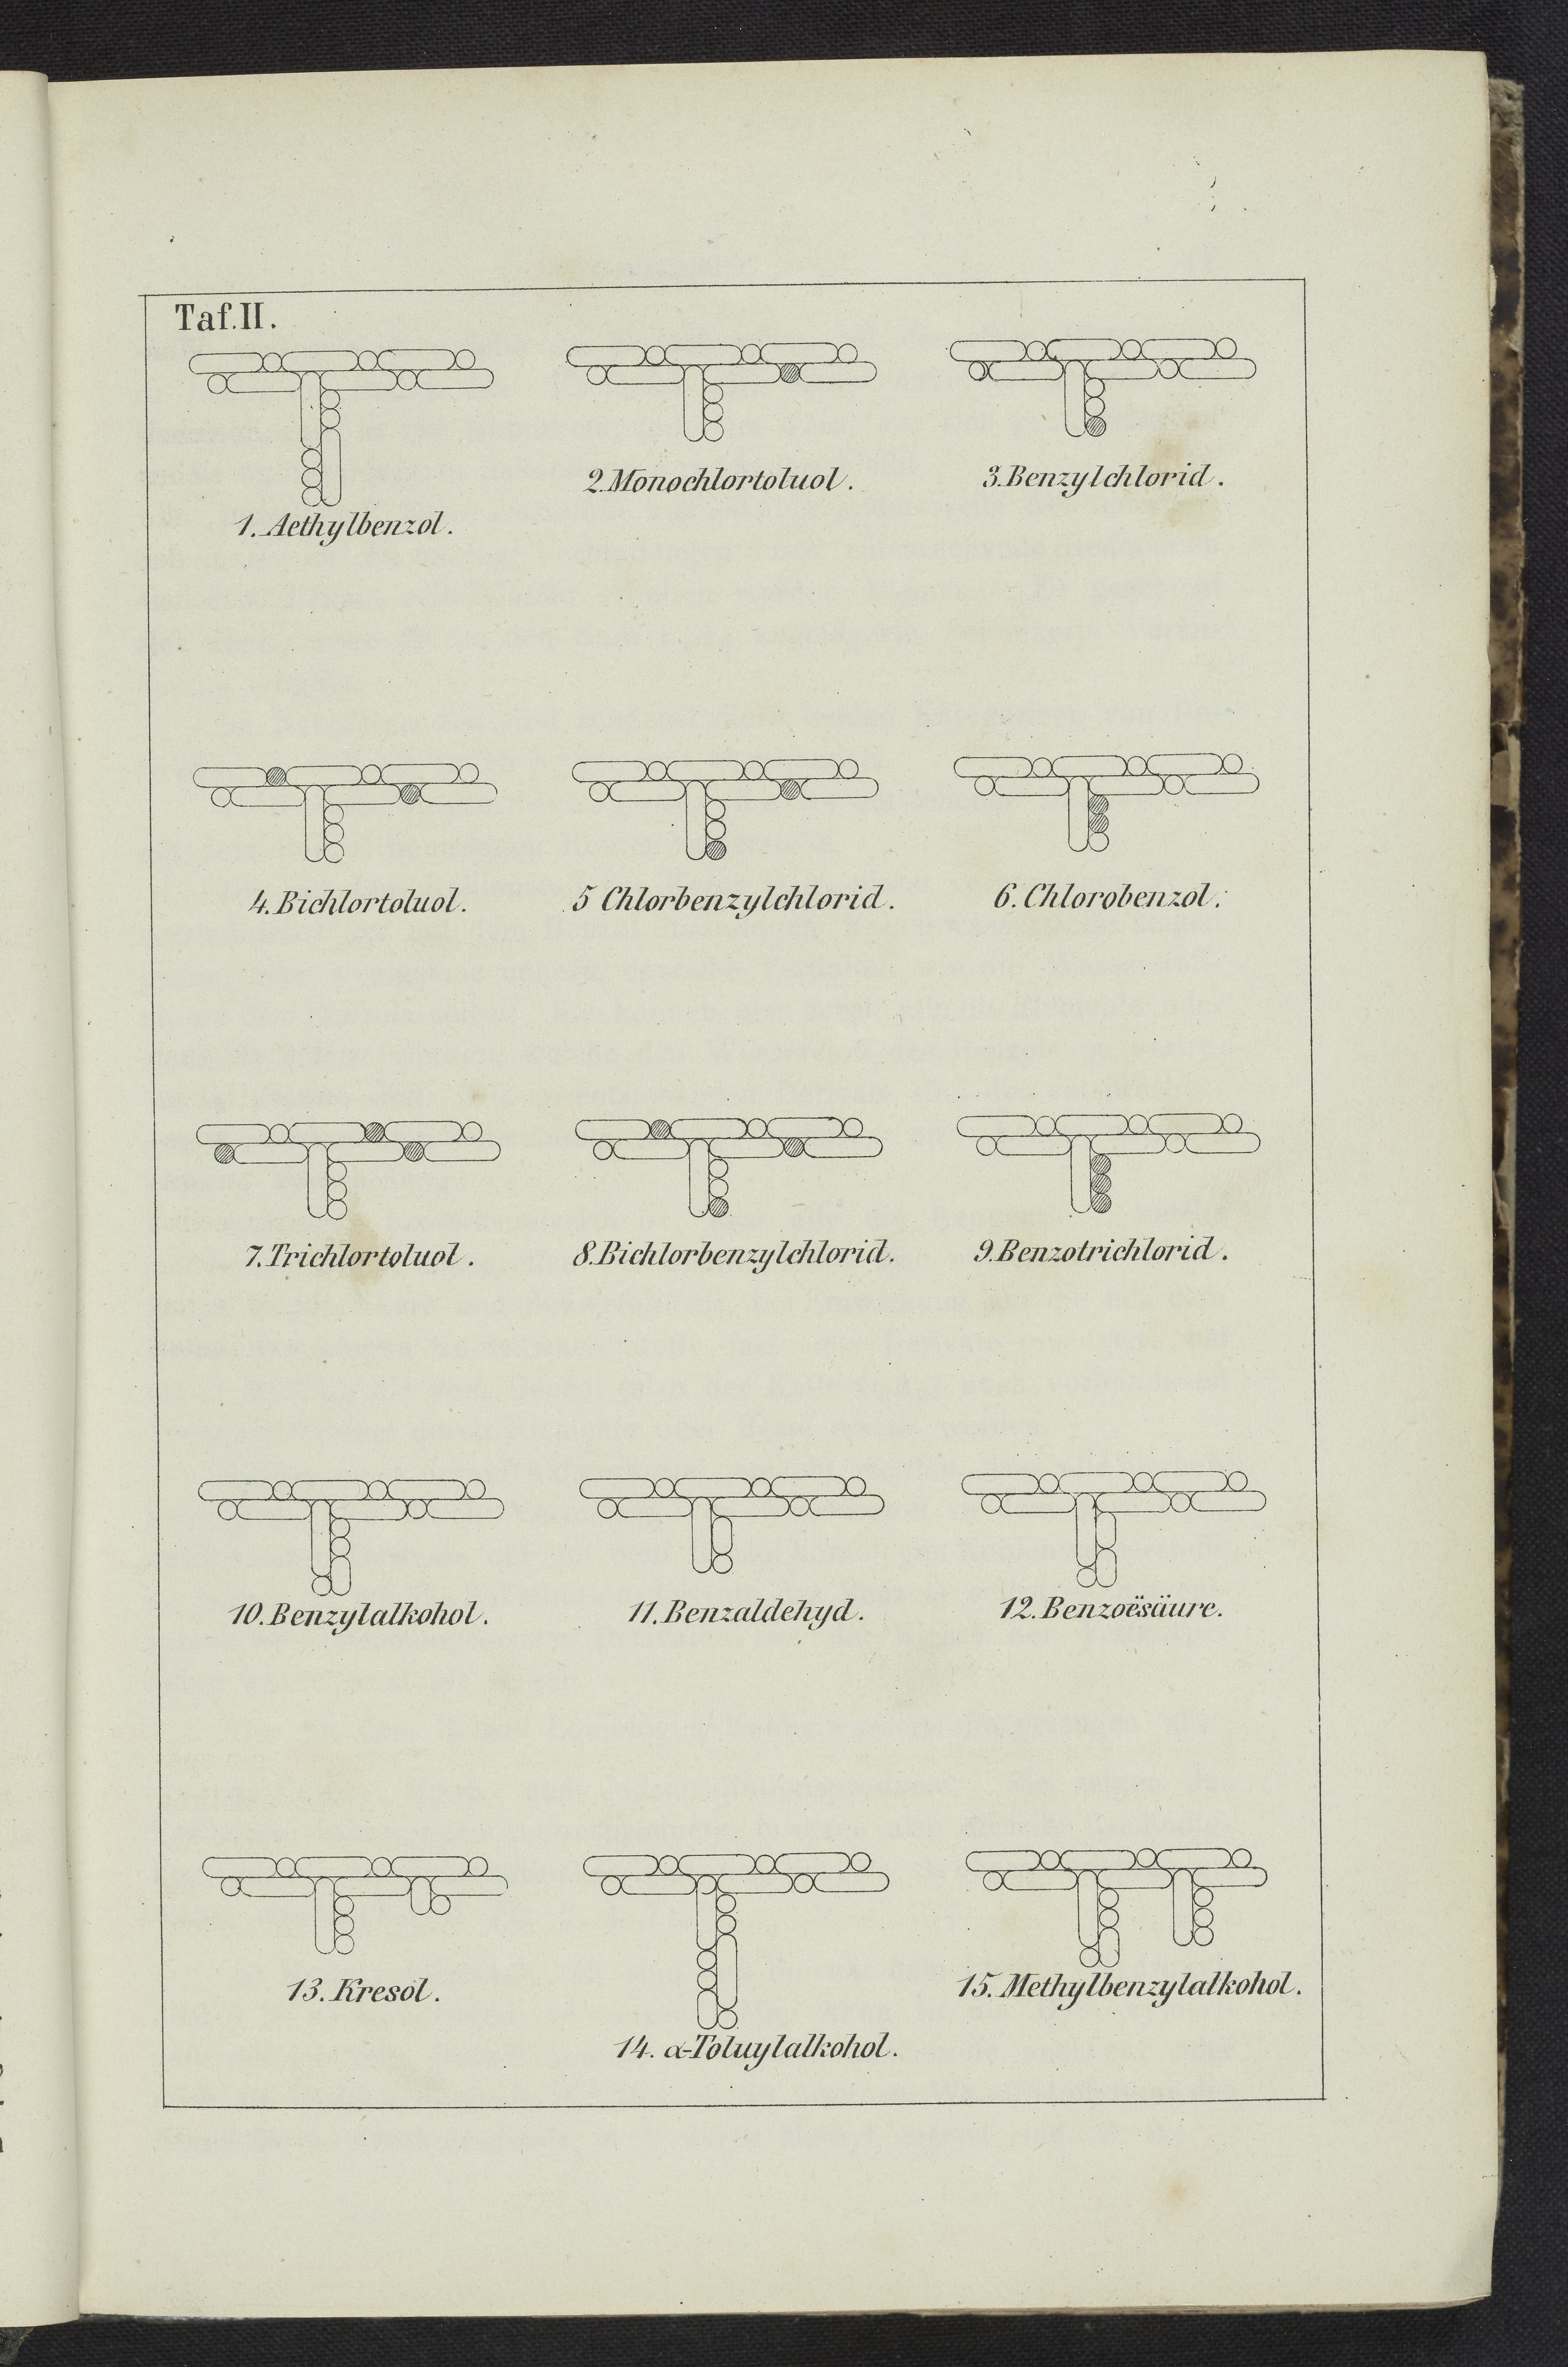 Taf. II.
1. Aethylbenzol.
2. Monochlortoluol.
3. Benzylchlorid.
4. Bichlortoluol.
5 Chlorbenzylchlorid.
6. Chlorobenzol.
7. Trichlortoluol.
8. Bichlorbenzylchlorid.
9. Benzotrichlorid.
10. Benzylalkohol.
11. Benzaldehyd.
12. Benzoësäure.
13. Kresol.
14. α-Toluylalkohol.
15. Methylbenzylalkohol.